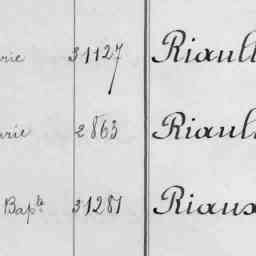 rie 31127 Riaull
rie 2863 Riaull
Bapte 31281 Riaux